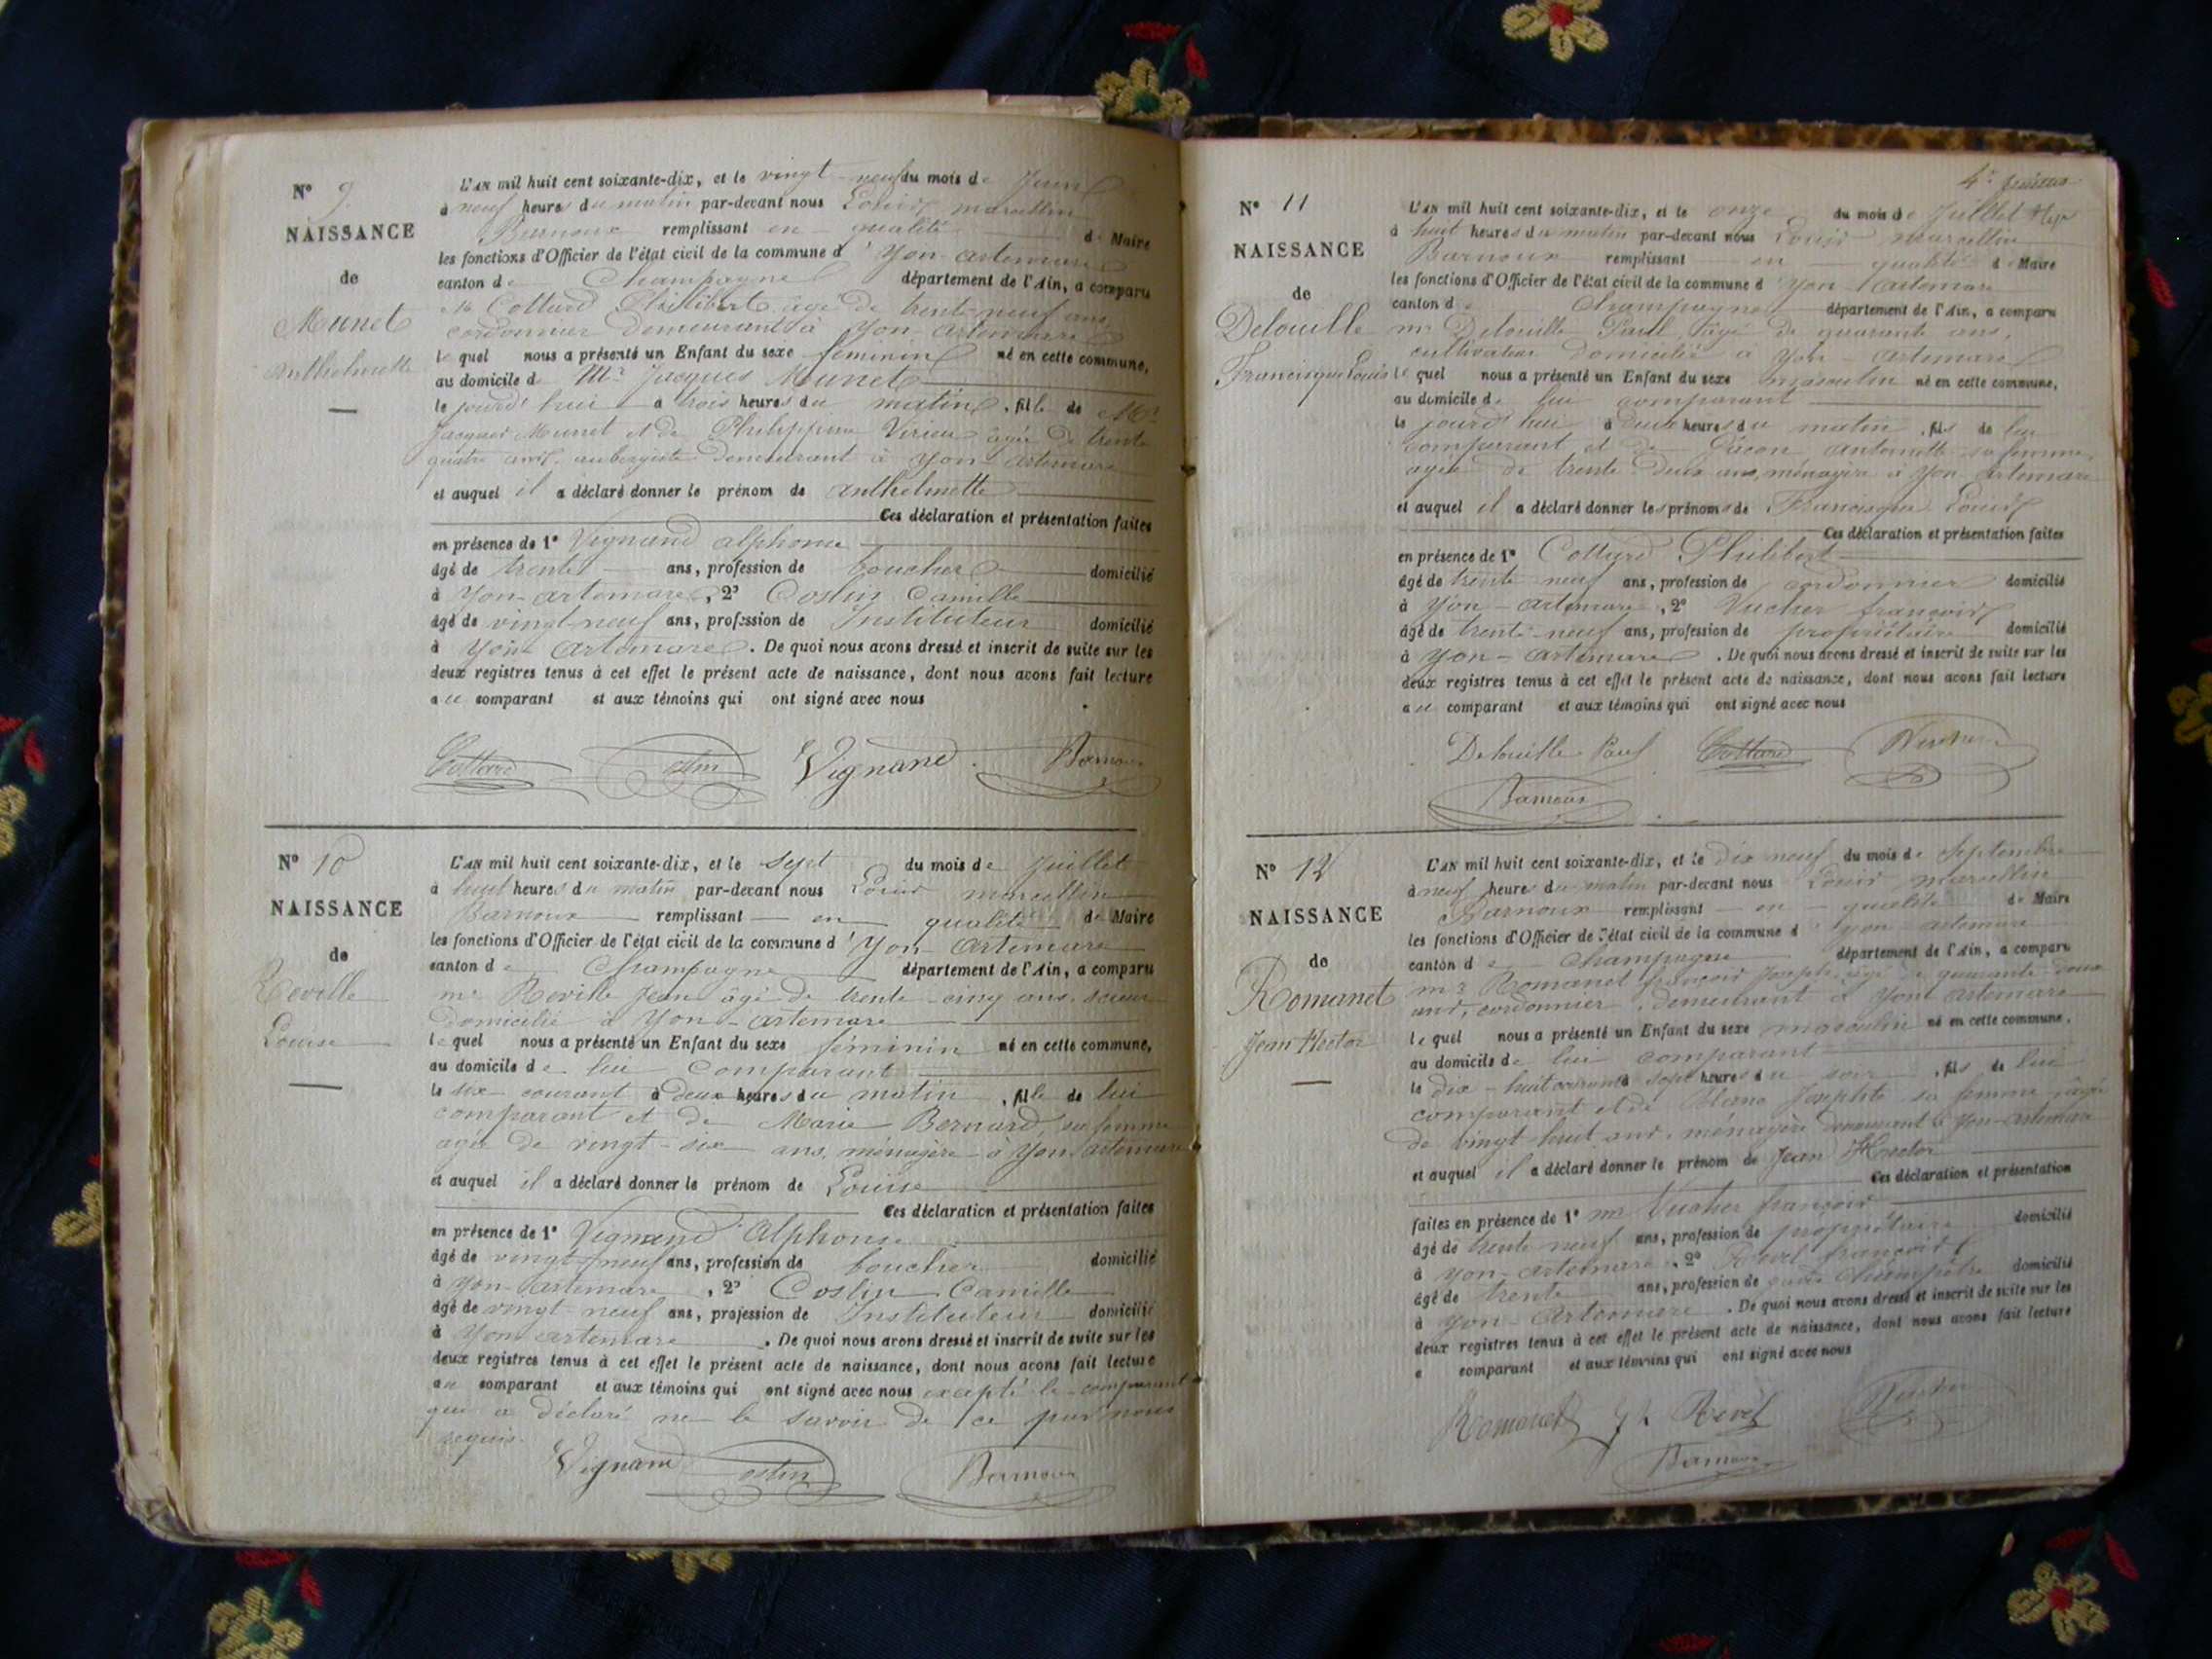 N° 9
NAISSANCE
de
Munet
Anthelmette
L'AN mil huit cent soixante-dix, et le vingt-neuf du mois de Juin
à neuf heures du matin par-devant nous Louis marcellin
Barnoux remplissant en qualité de Maire
les fonctions d'Officier de l'état civil de la commune d'Yon-artemare
canton de Champagne département de l'Ain, a comparu
Mr Collard Philibert âgé de trente-neuf ans
cordonnier demeurant à Yon-artemare
lequel nous a présenté un Enfant du sexe féminin né en cette commune,
au domicile de Mr Jacques Munet
le jourd'hui à trois heures du matin, fille de Mr
Jacques Munet et de Philippine Virieu âgée de trente
quatre ans, aubergiste demeurant à Yon artemare
et auquel il a déclaré donner le prénom de anthelmette
Ces déclaration et présentation faites
en présence de 1° Vignand alphonse
âgé de trente ans, profession de boucher domicilié
à Yon-artemare, 2° Costin Camille
âgé de vingt-neuf ans, profession de Instituteur domicilié
à Yon artemare. De quoi nous avons dressé et inscrit de suite sur les
deux registres tenus à cet effet le présent acte de naissance, dont nous avons fait lecture
au comparant et aux témoins qui ont signé avec nous
Collard Costin Vignand Barnoux
N° 10
NAISSANCE
de
Reville
Louise
L'AN mil huit cent soixante-dix, et le sept du mois de Juillet
à huit heures du matin par-devant nous Louis marcellin
Barnoux remplissant en qualité de Maire
les fonctions d'Officier de l'état civil de la commune d'Yon-artemare
canton de Champagne département de l'Ain, a comparu
mr Reville Jean âgé de trente-cinq ans, scieur
domicilié à Yon-artemare
lequel nous a présenté un Enfant du sexe féminin né en cette commune,
au domicile de lui comparant
le six courant à deux heures du matin, fille de lui
comparant et de Marie Bernard, sa femme
agée de vingt-six ans, ménagère à Yon artemare
et auquel il a déclaré donner le prénom de Louise
Ces déclaration et présentation faites
en présence de 1° Vignand Alphonse
âgé de vingt-neuf ans, profession de boucher domicilié
à Yon-artemare, 2° Costin Camille
âgé de vingt-neuf ans, profession de Instituteur domicilié
à Yon artemare. De quoi nous avons dressé et inscrit de suite sur les
deux registres tenus à cet effet le présent acte de naissance, dont nous avons fait lecture
au comparant et aux témoins qui ont signé avec nous excepté le comparant
qui a déclaré ne le savoir de ce par nous
requis.
Vignand Costin Barnoux
4e
N° 11
NAISSANCE
de
Delouille
Francisque Louis
L'AN mil huit cent soixante-dix, et le onze du mois de Juillet
à huit heures du matin par-devant nous Louis marcellin
Barnoux remplissant en qualité de Maire
les fonctions d'Officier de l'état civil de la commune d'Yon-artemare
canton de Champagne département de l'Ain, a comparu
mr Delouille Paul, âgé de quarante ans,
cultivateur domicilié à Yon-artemare
lequel nous a présenté un Enfant du sexe masculin né en cette commune,
au domicile de lui comparant
le jourd'hui à deux heures du matin, fils de lui
comparant et de antoinette sa femme
agée de trente deux ans, ménagère à Yon-artemare
et auquel il a déclaré donner les prénoms de Francisque Louis
Ces déclaration et présentation faites
en présence de 1° Collard Philibert
âgé de trente neuf ans, profession de cordonnier domicilié
à Yon-artemare, 2° Vucher françois
âgé de trente-neuf ans, profession de propriétaire domicilié
à Yon-artemare. De quoi nous avons dressé et inscrit de suite sur les
deux registres tenus à cet effet le présent acte de naissance, dont nous avons fait lecture
au comparant et aux témoins qui ont signé avec nous
Delouille Paul Collard Vucher
Barnoux
N° 12
NAISSANCE
de
Romanet
Jean Hector
L'AN mil huit cent soixante-dix, et le dix neuf du mois de Septembre
à neuf heures du matin par-devant nous Louis marcellin
Barnoux remplissant en qualité de Maire
les fonctions d'Officier de l'état civil de la commune d'yon-artemare
canton de Champagne département de l'Ain, a comparu
mr Romanet françois Joseph, âgé de quarante-deux
ans, cordonnier, demeurant à Yon artemare
lequel nous a présenté un Enfant du sexe masculin né en cette commune,
au domicile de lui comparant
le dix-huit courant à sept heures du soir, fils de lui
comparant et de Josephte sa femme âgée
de vingt huit ans, ménagère demeurant à Yon-artemare
et auquel il a déclaré donner le prénom de Jean Hector
Ces déclaration et présentation
faites en présence de 1° mr Vucher françois
âgé de trente neuf ans, profession de propriétaire domicilié
à yon-artemare, 2° Revel françois
âgé de trente ans, profession de garde champêtre domicilié
à Yon-Artemare. De quoi nous avons dressé et inscrit de suite sur les
deux registres tenus à cet effet le présent acte de naissance, dont nous avons fait lecture
a comparant et aux témoins qui ont signé avec nous
Romanet Revel Vucher
Barnoux